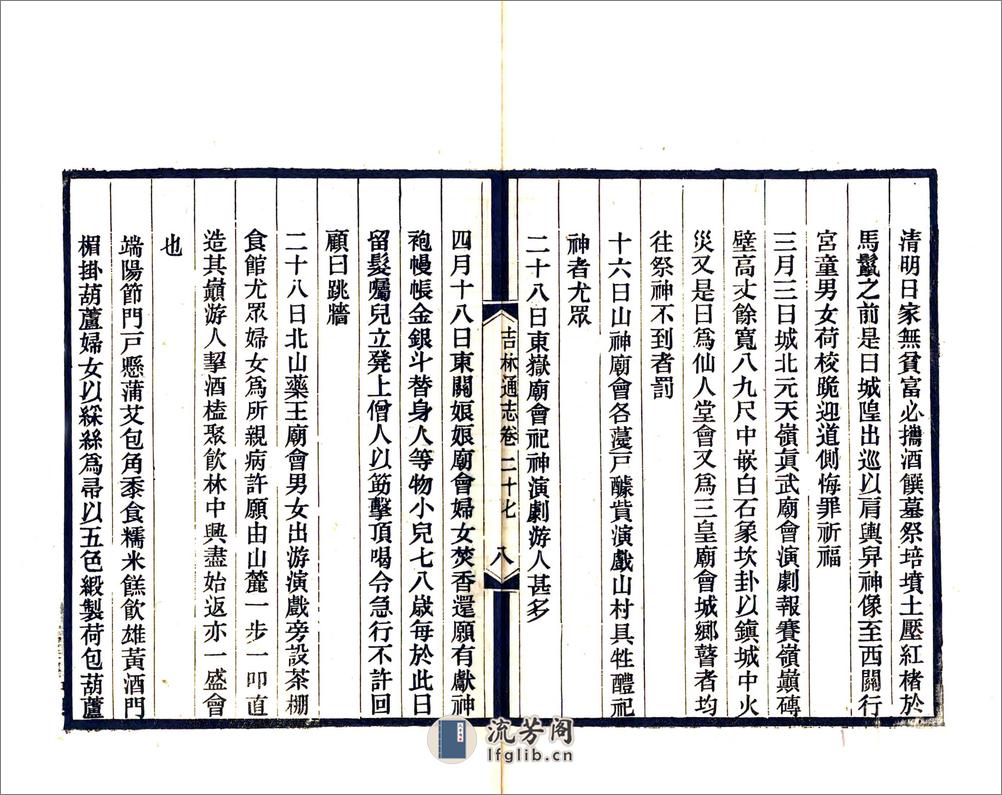 清明日家無貧富必攜酒饌墓祭培墳土壓紅楮於
馬鬣之前是日城隍出巡以肩輿舁神像至西關行
宮童男女荷校跪迎道側悔罪祈福
三月三日城北元天嶺眞武廟會演劇報賽嶺巔磚
壁高丈餘寬八九尺中嵌白石象坎卦以鎭城中火
災又是日爲仙人堂會又爲三皇廟會城鄉瞽者均
往祭神不到者罰
十六日山神廟會各蓡戸醵貲演戲山村具牲醴祀
神者尤眾
二十八日東嶽廟會祀神演劇游人甚多
吉林通志卷二十七 八
四月十八日東關娘娘廟會婦女焚香還願有獻神
袍幔帳金銀斗替身人等物小兒七八歲每於此日
留髮囑兒立凳上僧人以筯擊頂喝令急行不許回
顧曰跳牆
二十八日北山藥王廟會男女出游演戲旁設茶棚
食館尤眾婦女爲所親病許願由山麓一步一叩直
造其巔游人挈酒榼聚飲林中興盡始返亦一盛會
也
端陽節門戸懸蒲艾包角黍食糯米餻飲雄黃酒門
楣掛葫蘆婦女以綵絲爲帚以五色緞製荷包葫蘆
流芳阁
lfglib.cn